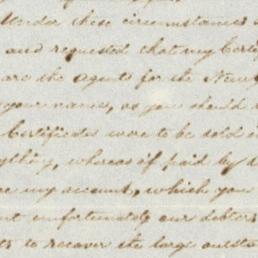 Under these circumstances
and requested that my Certi
are the agents for the New
your names, as you should
Certificates were to be sold
ything, whereas if paid by
re my account, which you
nt unfortunately our debtors
to recover the large outsta